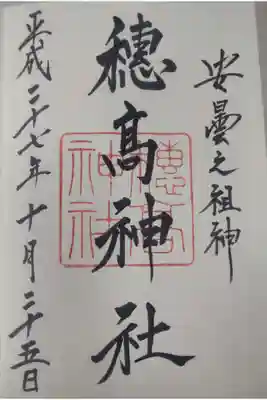 安曇之祖神
穗髙神社
平成二十七年十月二十五日
穗高神社